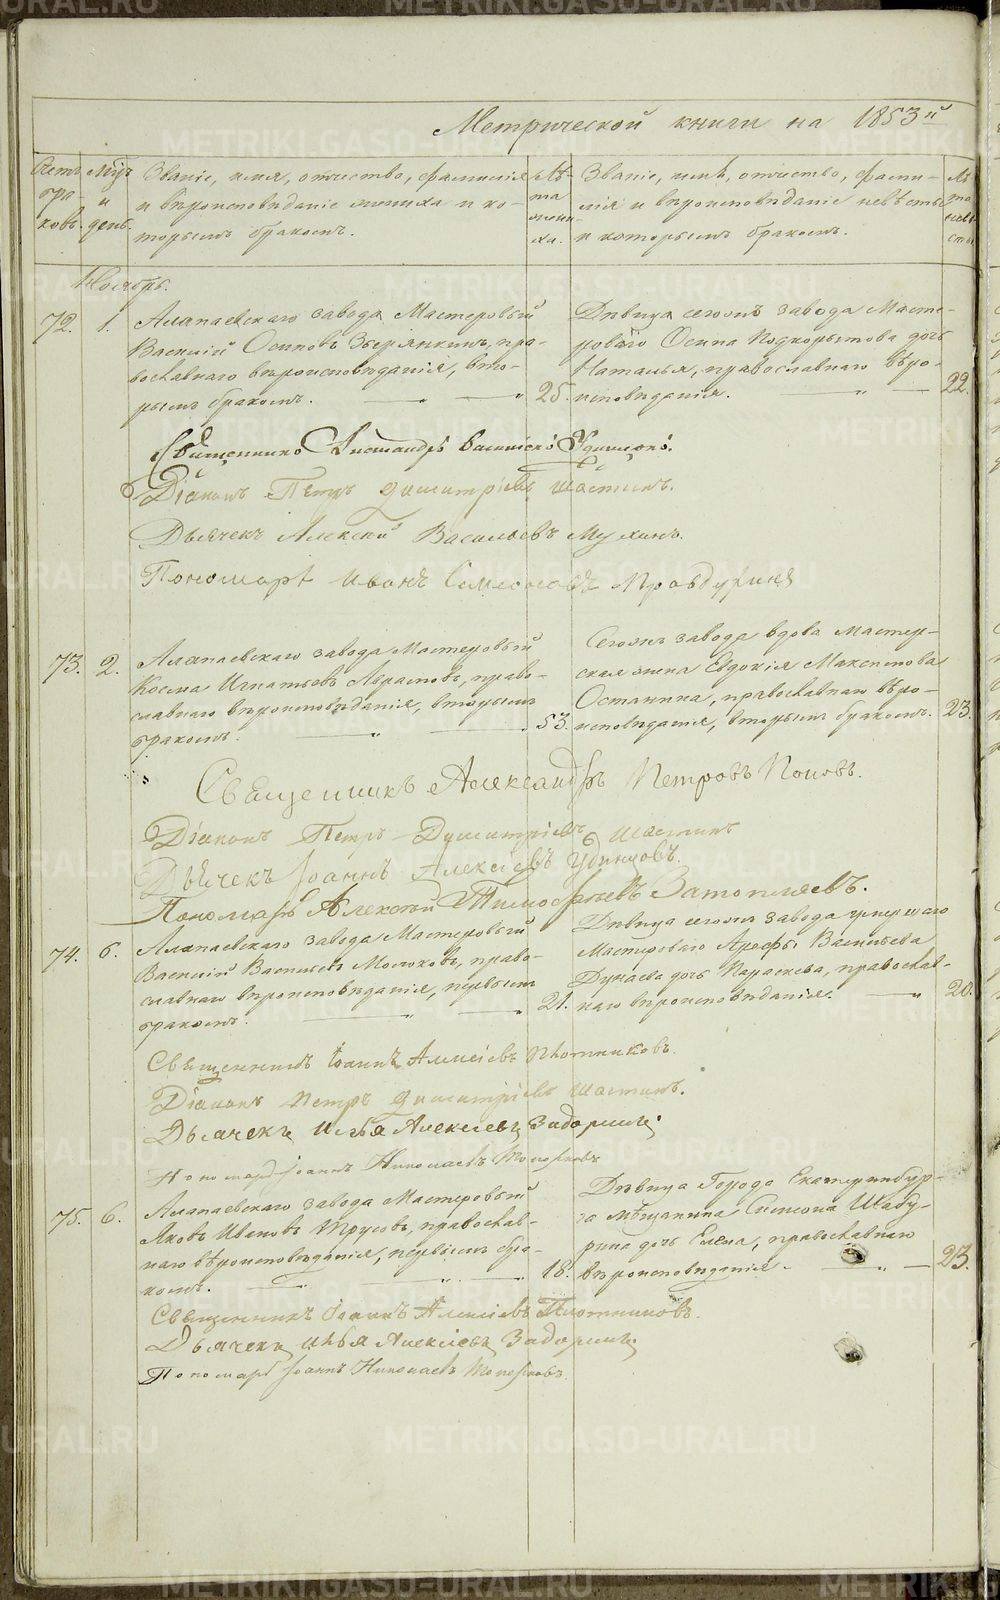 Метрической книги на 1853й
Счетъ бра- ковъ.
Мцъ и день.
Званіе, имя, отчество, фамилія
и вѣроисповѣданіе жениха и ко-
торымъ бракомъ.
Лѣ-
та
жени-
ха.
Званіе, имя, отчество, фами-
лія и вѣроисповѣданіе невѣсты
и которымъ бракомъ.
Лѣ-
та
невѣ-
сты
Ноябрь.
72. 1. Алапаевскаго завода Мастеровый
Василій Осиповъ Зырянкинъ, пра-
вославнаго вѣроисповѣданія, вто-
рымъ бракомъ. 25.
Дѣвица сегожъ завода Масте-
роваго Осипа Подкорытова дочь
Наталья, православнаго вѣро-
исповѣданія. 22.
Священникъ Александръ Васильевъ Удинцовъ.
Діаконъ Петръ Димитріевъ Шастинъ.
Дьячекъ Алексій Васильевъ Мухинъ.
Пономарь Иванъ Симеоновъ Правдухинъ
73. 2. Алапаевскаго завода Мастеровый
Косма Игнатьевъ Абрамовъ, право-
славнаго вѣроисповѣданія, вторымъ
бракомъ. 53.
Сегожъ завода вдова мастер-
ская жена Евдокія Максимова
Останина, православнаго вѣро-
исповѣданія, вторымъ бракомъ. 23.
Священникъ Александръ Петровъ Поповъ.
Діаконъ Петръ Димитріевъ Шастинъ
Дьячекъ Іоаннъ Алексіевъ Удинцовъ.
Пономарь Алексѣй Тимофѣевъ Затопляевъ.
74. 6. Алапаевскаго завода Мастеровый
Василій Васильевъ Молоковъ, право-
славнаго вѣроисповѣданія, первымъ
бракомъ. 21.
Дѣвица сегожъ завода умершаго
Мастероваго Арефы Васильева
Дунаева дочь Параскева, православ-
наго вѣроисповѣданія. 20.
Священникъ Іоаннъ Алексіевъ Плотниковъ.
Діаконъ Петръ Димитріевъ Шастинъ.
Дьячекъ Илья Алексіевъ Задоринъ
Пономарь Іоаннъ Николаевъ Топорковъ
75. 6. Алапаевскаго завода Мастеровый
Яковъ Ивановъ Трусовъ, православ-
наго вѣроисповѣданія, первымъ бра-
комъ. 18.
Дѣвица Города Екатеринбур-
га мѣщанина Симеона Шабу-
рина дочь Елена, православнаго
вѣроисповѣданія. 23.
Священникъ Іоаннъ Алексіевъ Плотниковъ.
Дьячекъ Илья Алексіевъ Задоринъ
Пономарь Іоаннъ Николаевъ Топорковъ.